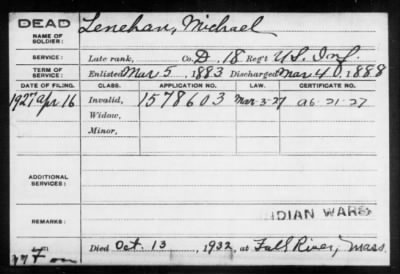 DEAD
NAME OF SOLDIER: Lenehan, Michael
SERVICE: Late rank, Co. D, 18 Reg't U.S. Inf.
TERM OF SERVICE: Enlisted Mar 5, 1883 Discharged Mar 4, 1888
DATE OF FILING. CLASS. APPLICATION NO. LAW. CERTIFICATE NO.
1927 Apr 16 Invalid, 1578603 Mar-3-27 a6-21-27
Widow,
Minor,
ADDITIONAL SERVICES:
INDIAN WARS
REMARKS:
Died Oct. 13, 1932, at Fall River, Mass.